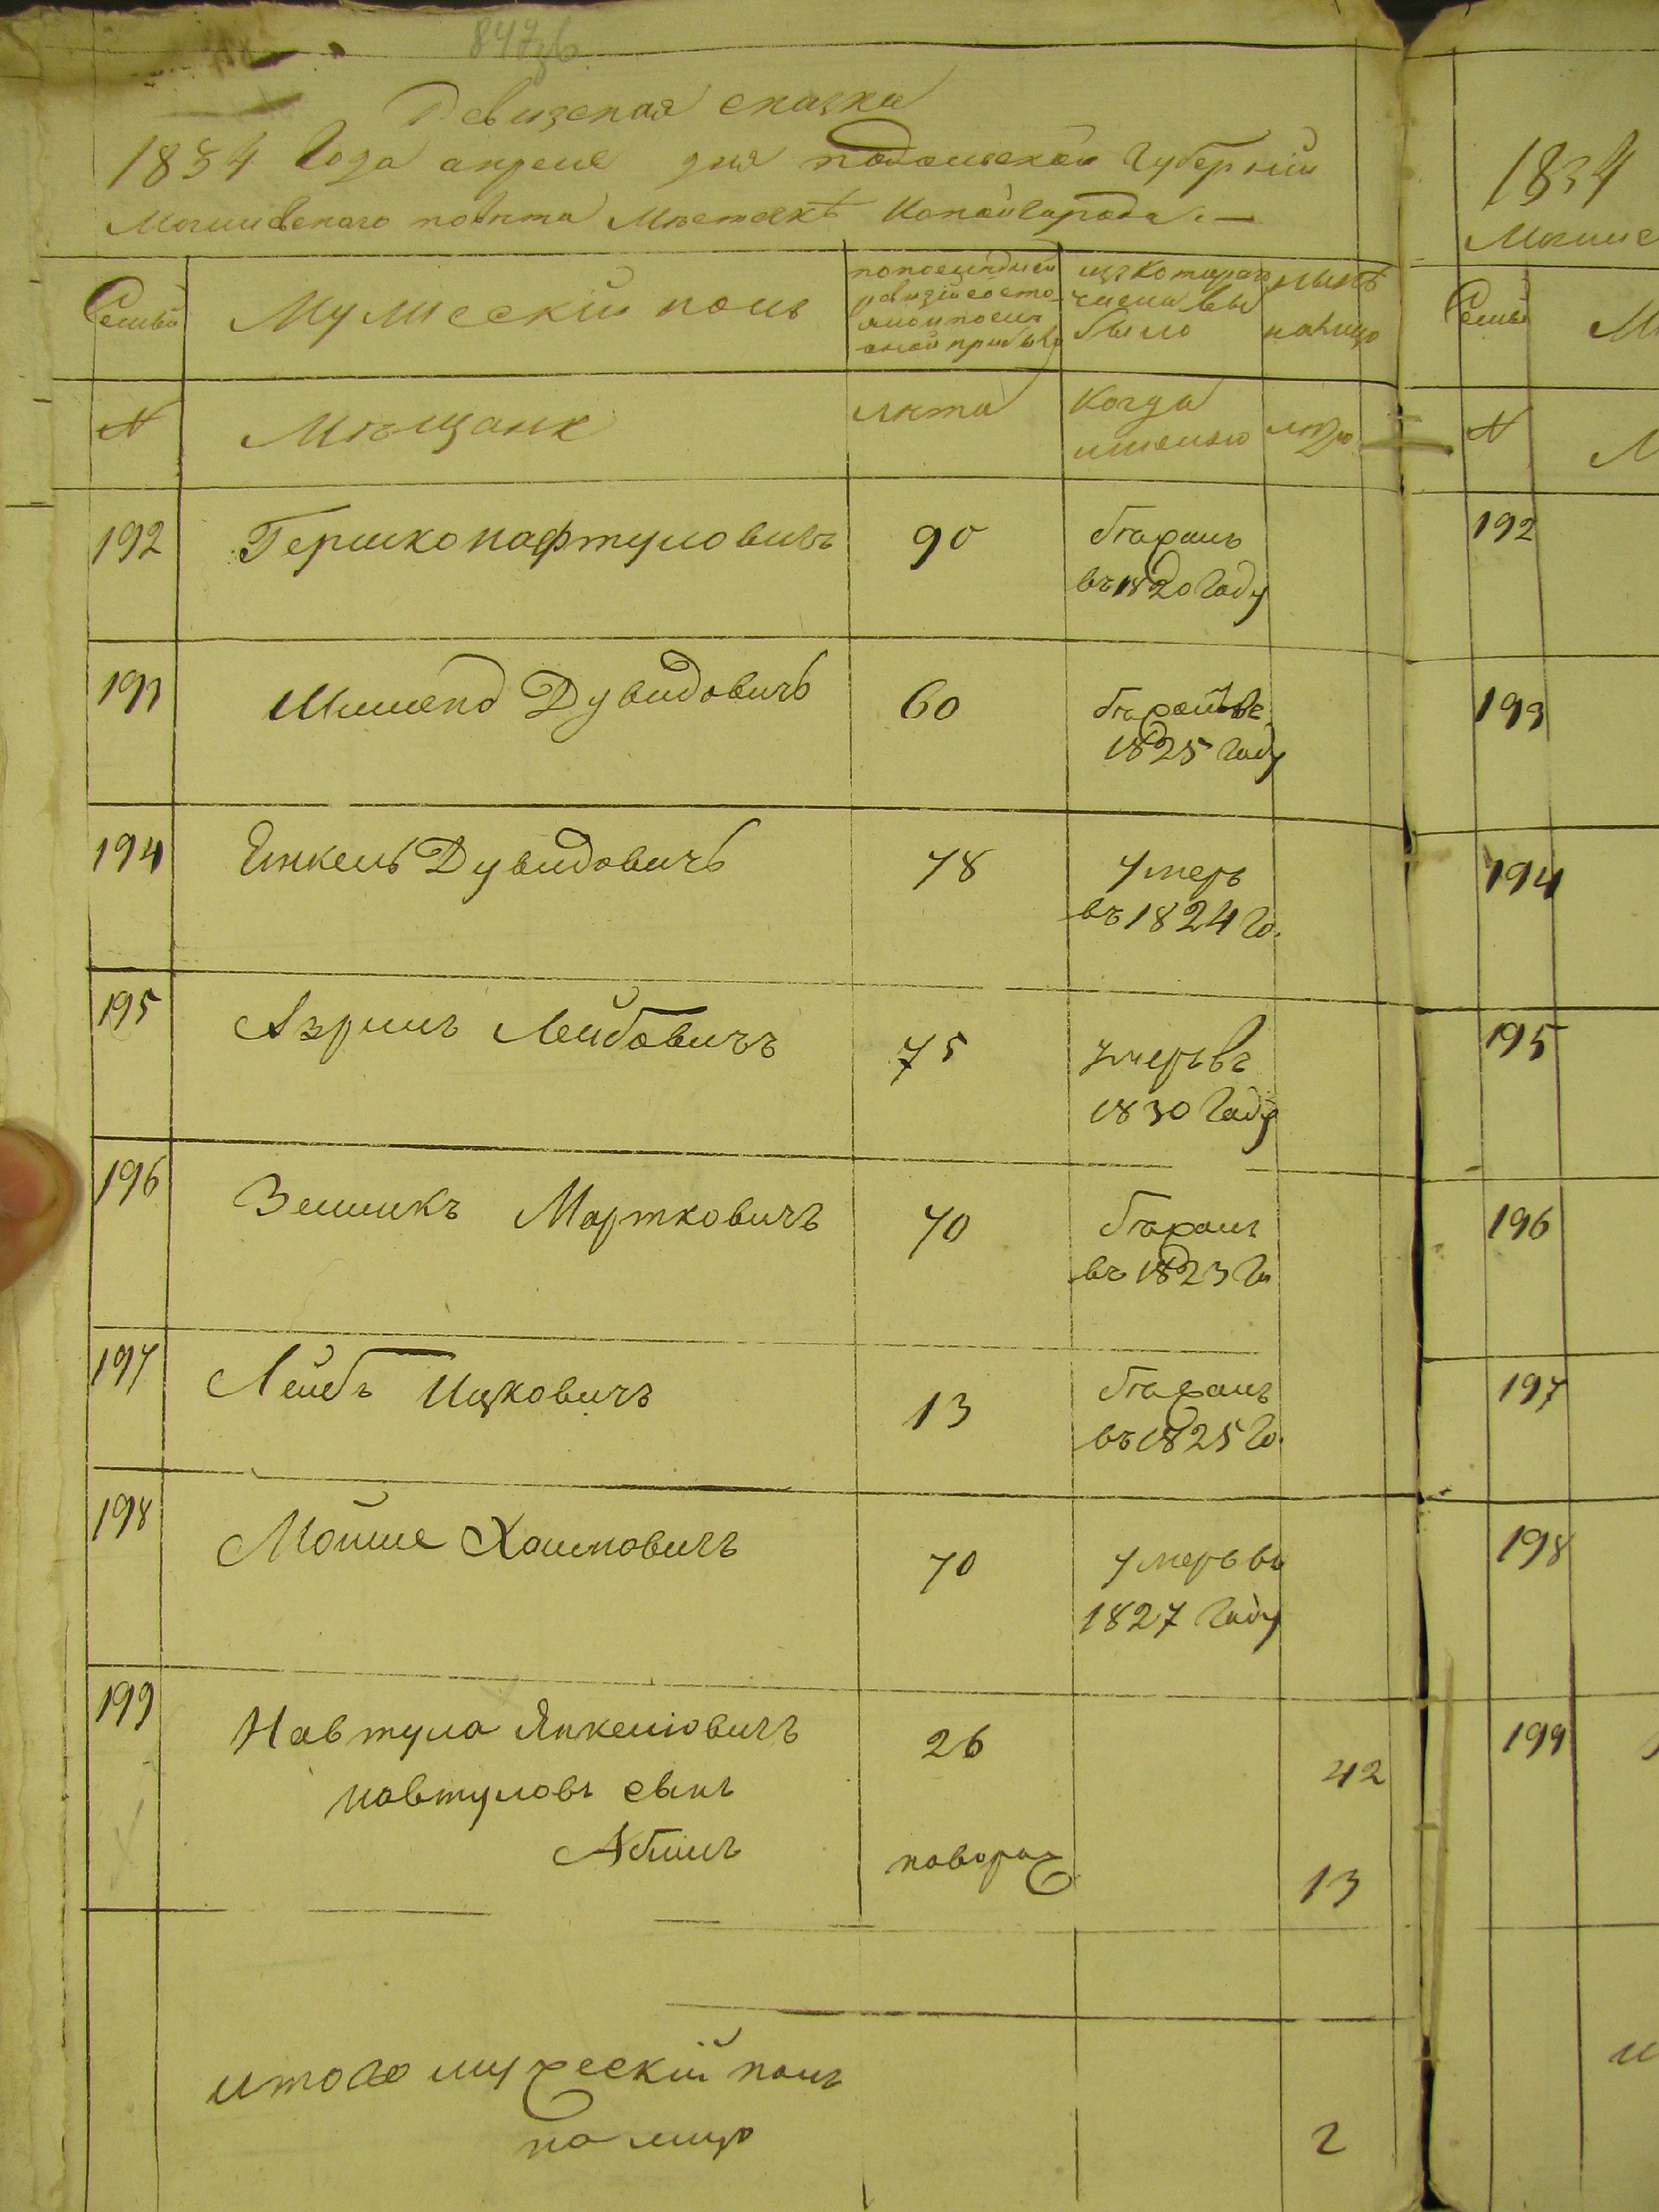 847зв
Ревизская сказка
1834 Года апреля дня подольской Губернiи
Могилевского повѣта Мѣстечкѣ Копайгорода.—
Семьи
Мужескiй полъ
по последней ревизiи состояло и после оной прибыло
изъ которого числа выбыло
нынѣ налицо
N
Мѣщане
лѣта
Когда именно
лѣта
192 Гершко нафтуловичъ 90 бѣжалъ
въ 1820 Году
193 Шмено Дувидовичъ 60 бѣжалъ ве
1825 Году
194 Енкель Дувидовичъ 78 Умеръ
въ 1824 Го.
195 Азриль Лейбовичъ 75 умеръ въ
1830 Году
196 Зелникъ Мортковичъ 70 бѣжалъ
въ 1823 Го
197 Лейбъ Ицковичъ 13 бѣжалъ
въ 1825 Го.
198 Мойше Хаимовичъ 70 Умеръ въ
1827 Году
199 Навтула Янкелiовичъ 26 42
навтуловъ сынъ
Абишъ новорож 13
итого мужескiй полъ
на лицо 2
1834
Могиле
Семьи
М
N
М
192
193
194
195
196
197
198
199
и